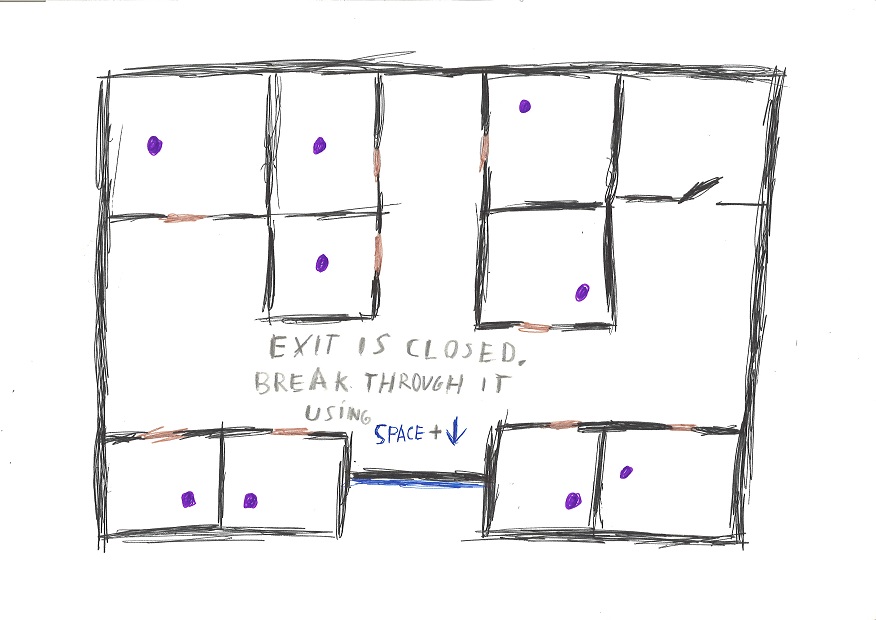 EXIT IS CLOSED.
BREAK THROUGH IT
USING
SPACE + ↓